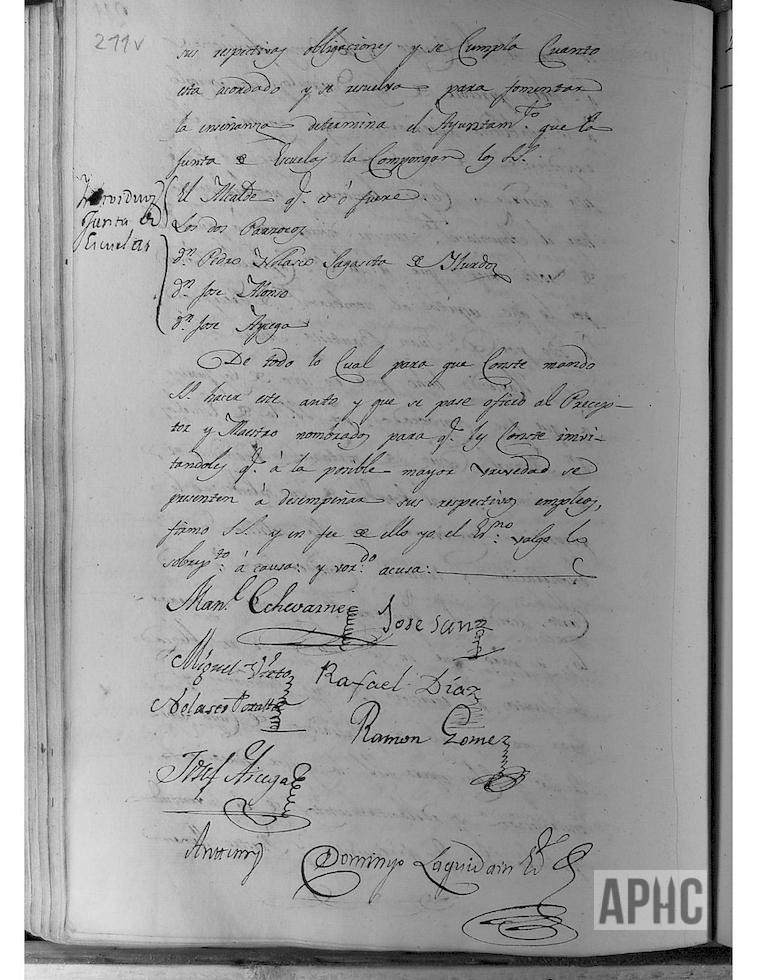 211v
sus respectivas obligaciones y se Cumpla Cuanto
esta acordado y se resuelva para fomentar
la enseñanza determina el Ayuntam.to que la
Junta de Escuelas la Compongan los SS.
Yndividuos
Junta de
Escuelas
El Alcalde q.e es ó fuere.
Los dos Parrocos
d.n Pedro Nolasco Sagaseta de Ylurdoz
d.n Jose Alonso
d.n Jose Aycega
De todo lo Cual para que Conste mando
SS. hacer este auto y que se pase oficio al Precep-
tor y Maestro nombrados para q.e les Conste invi-
tandoles q.e á la posible mayor brevedad se
presenten á desempeñar sus respectivos empleos,
firmo SS. y en fee de ello yo el Es.no valga lo
á causa: y acusa:
Man.l Echevarne Jose Sanz
Miguel Rafael Diaz
Nolasco Peralta
Ramon Gomez
Josef Aicega
Domingo Laguidain Es.
APHC